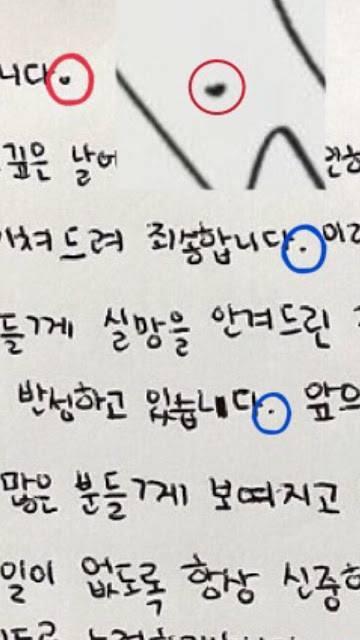 니다.
깊은 날에
드려 죄송합니다. 이
들께 실망을 안겨드린
반성하고 있습니다. 앞으
많은 분들께 보여지고
일이 없도록 항상 신중하